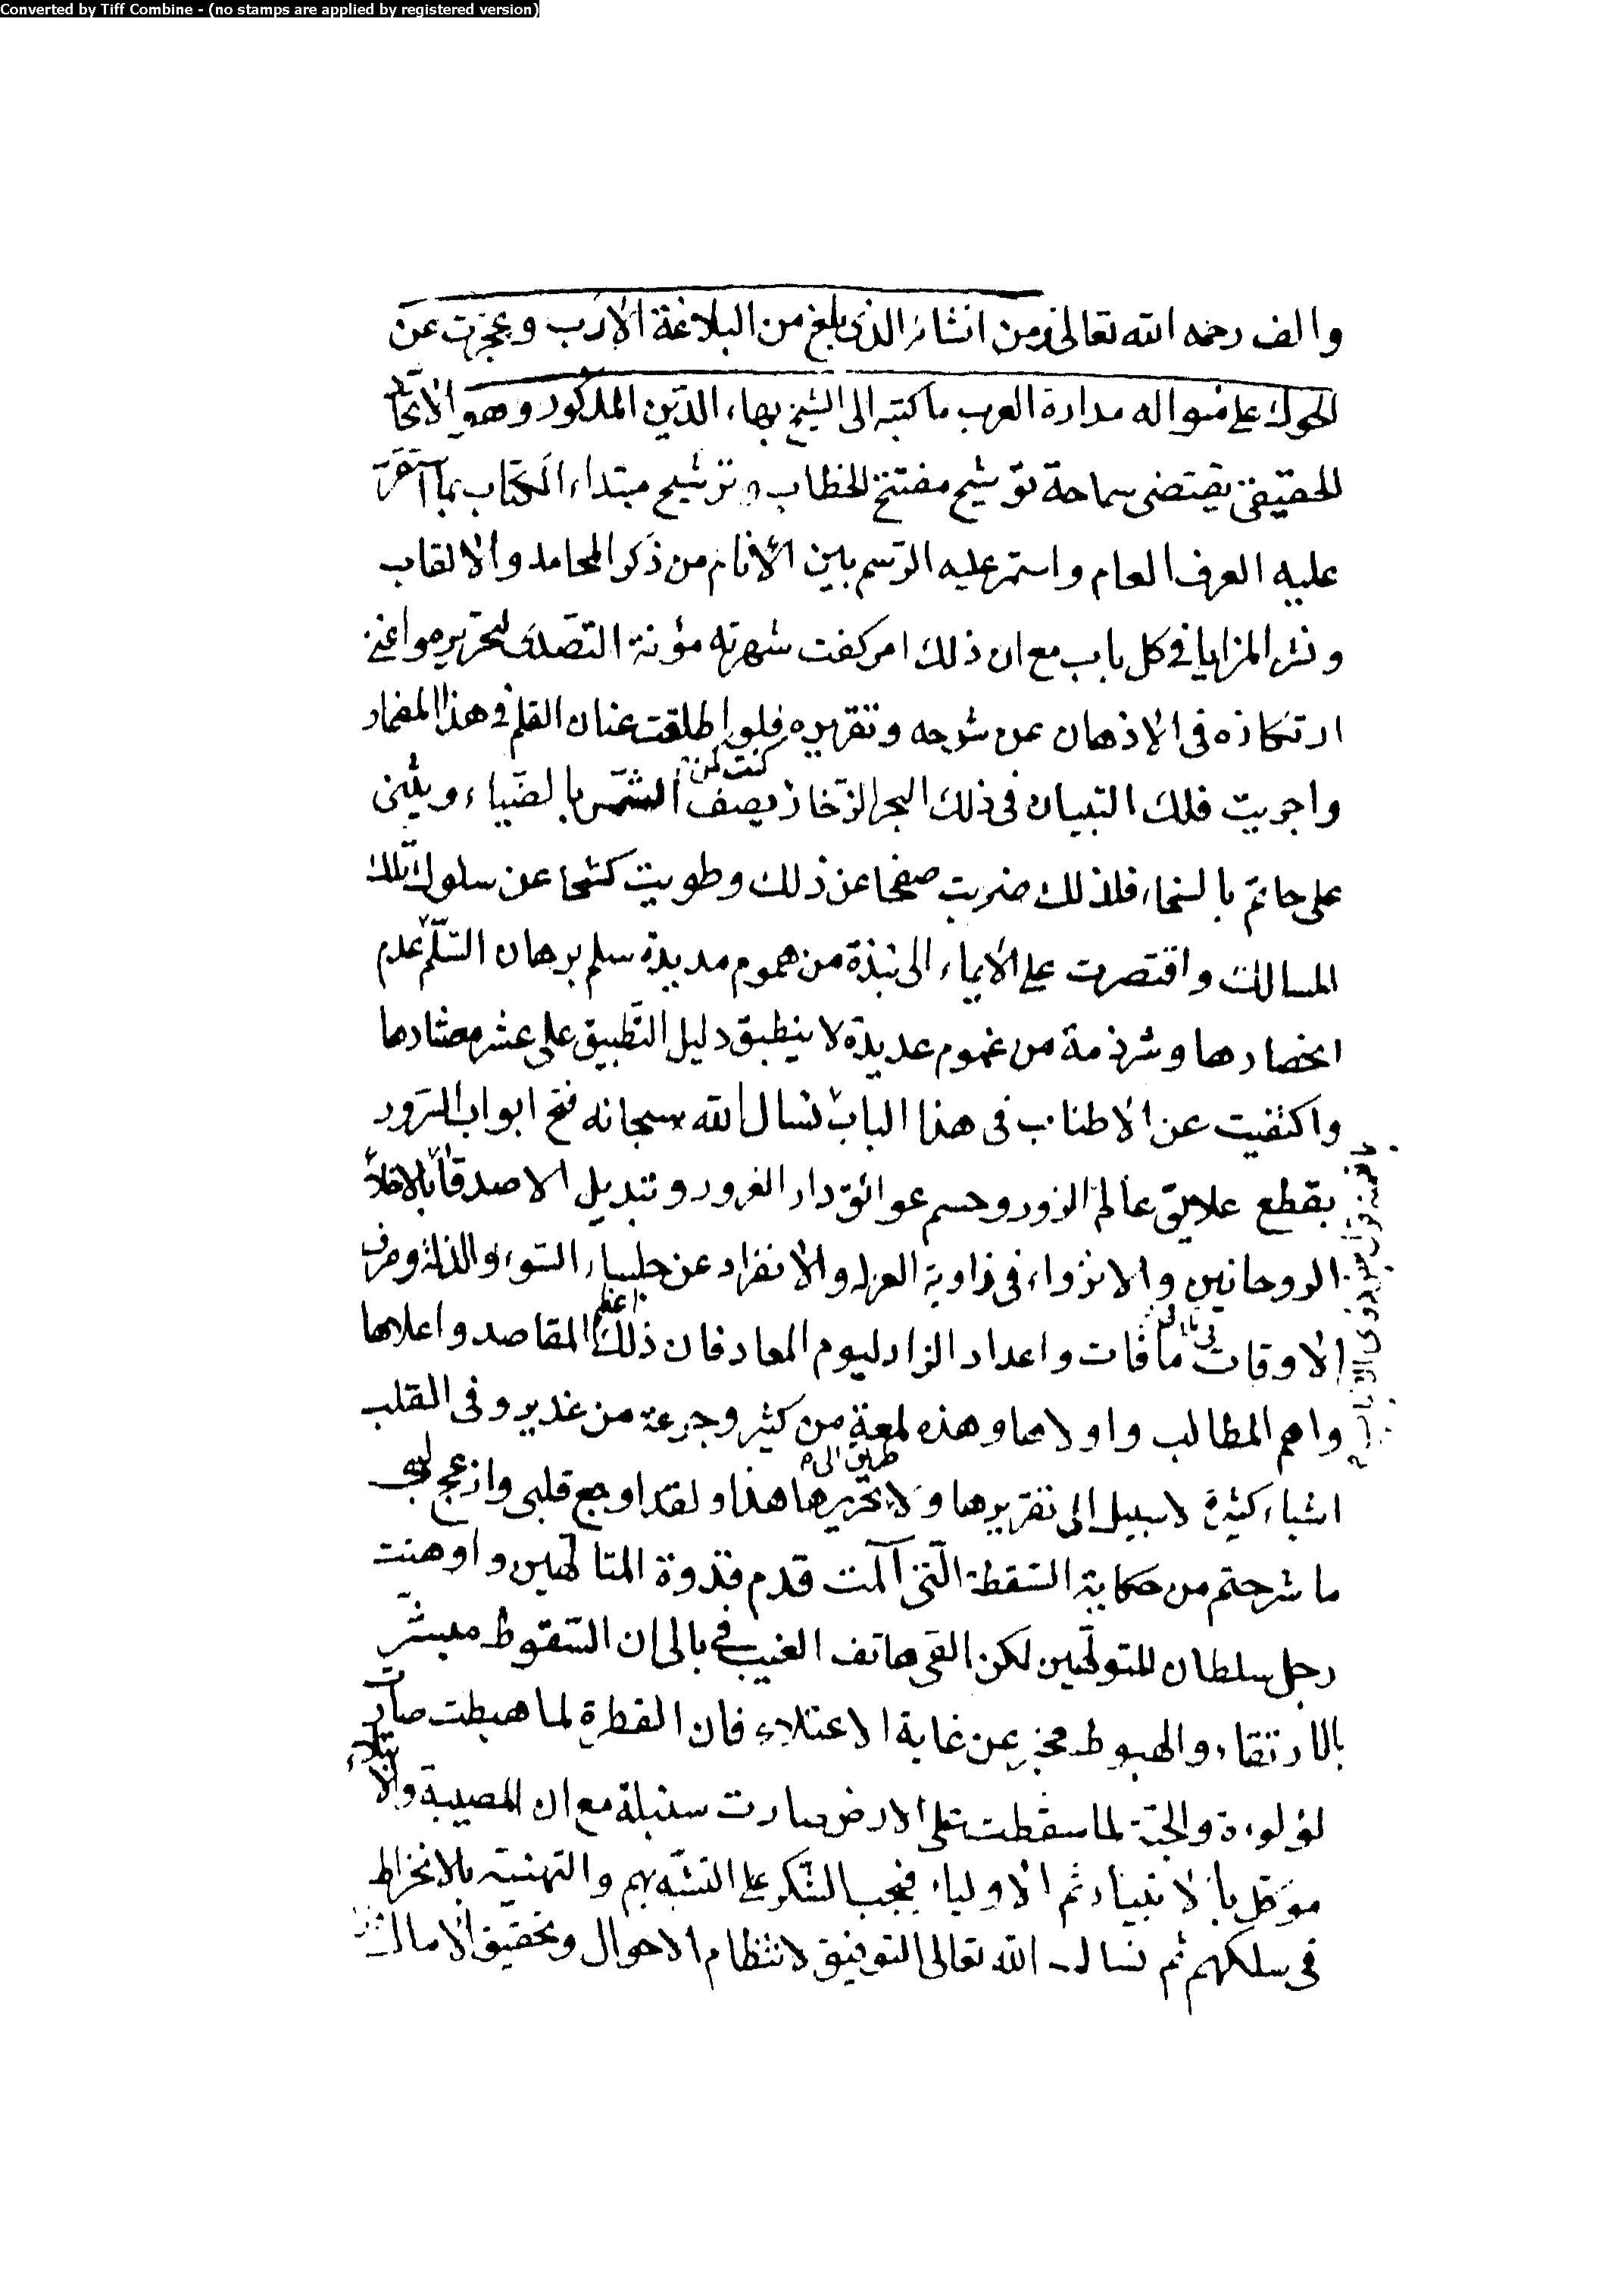 Converted by Tiff Combine - (no stamps are applied by registered version)
والف رحمه الله تعالى ومن انشائه الذى بلغ من البلاغة الارب وعجزت عن
الحوك على منواله مدارة العرب ما كتبه الى الشيخ بهاء الدين المذكور وهو الاتحاد
الحقيقى يقتضى سماحة توشيح مفتتح الخطاب وترشيح مبتداء الكتاب بما استقر
عليه العرف العام واستمر عليه الرسم بين الانام من ذكر المحامد والالقاب
ونشر المزايا فى كل باب مع ان ذلك امر كفت شهرته مؤنة التصدى لتحريره واغنى
ارتكازه فى الاذهان عن شرحه وتقريره فلو اطلقت عنان القلم فى هذا المضمار
واجريت فلك التبيان فى ذلك البحر الزخار كنت كمن يصف الشمس بالضياء ويثنى
على حاتم بالسخاء فلذلك ضربت صفحا عن ذلك وطويت كشحا عن سلوك تلك
المسالك واقتصرت على الايماء الى نبذة من هموم مديدة سلم برهان السلم عدم
انحصارها وشرذمة من غموم عديدة لا ينطبق دليل التطبيق على عشر معشارها
واكتفيت عن الاطناب فى هذا الباب نسال الله سبحانه فتح ابواب السرور
بقطع علايق عالم الزور وحسم عوائق دار الغرور وتبديل الاصدقاء بالاخلاء
الروحانين والانزواء فى زاوية العزله والانفراد عن جلساء السوء والذلة وصرف
الاوقات فى تلافى ما فات واعداد الزاد ليوم المعاد فان ذلك اعظم المقاصد واعلاها
واهم المطالب واولاها وهذه لمعة من كثير وجرعة من غدير وفى القلب
اشياء كثيرة لا سبيل الى تقريرها ولا طريق الى تحريرها هذا ولقد اوجع قلبى وازعج لبى
ما شرحتم من حكاية السقطة التى آلمت قدم قدوة المتالهين واوهنت
رجل سلطان المتولهين لكن القى هاتف الغيب فى بالى ان السقوط مبشر
بالارتقاء والهبوط مخبر عن غاية الاعتلاء فان القطرة لما هبطت صارت
لؤلوءة والحبة لما سقطت على الارض صارت سنبلة مع ان المصيبة والابتلاء
موكل بالانبياء ثم الاولياء فيجب الشكر على التشبه بهم والتهنية بالانخراط
فى سلكهم ثم نسال الله تعالى التوفيق لانتظام الاحوال وتحقيق الامال